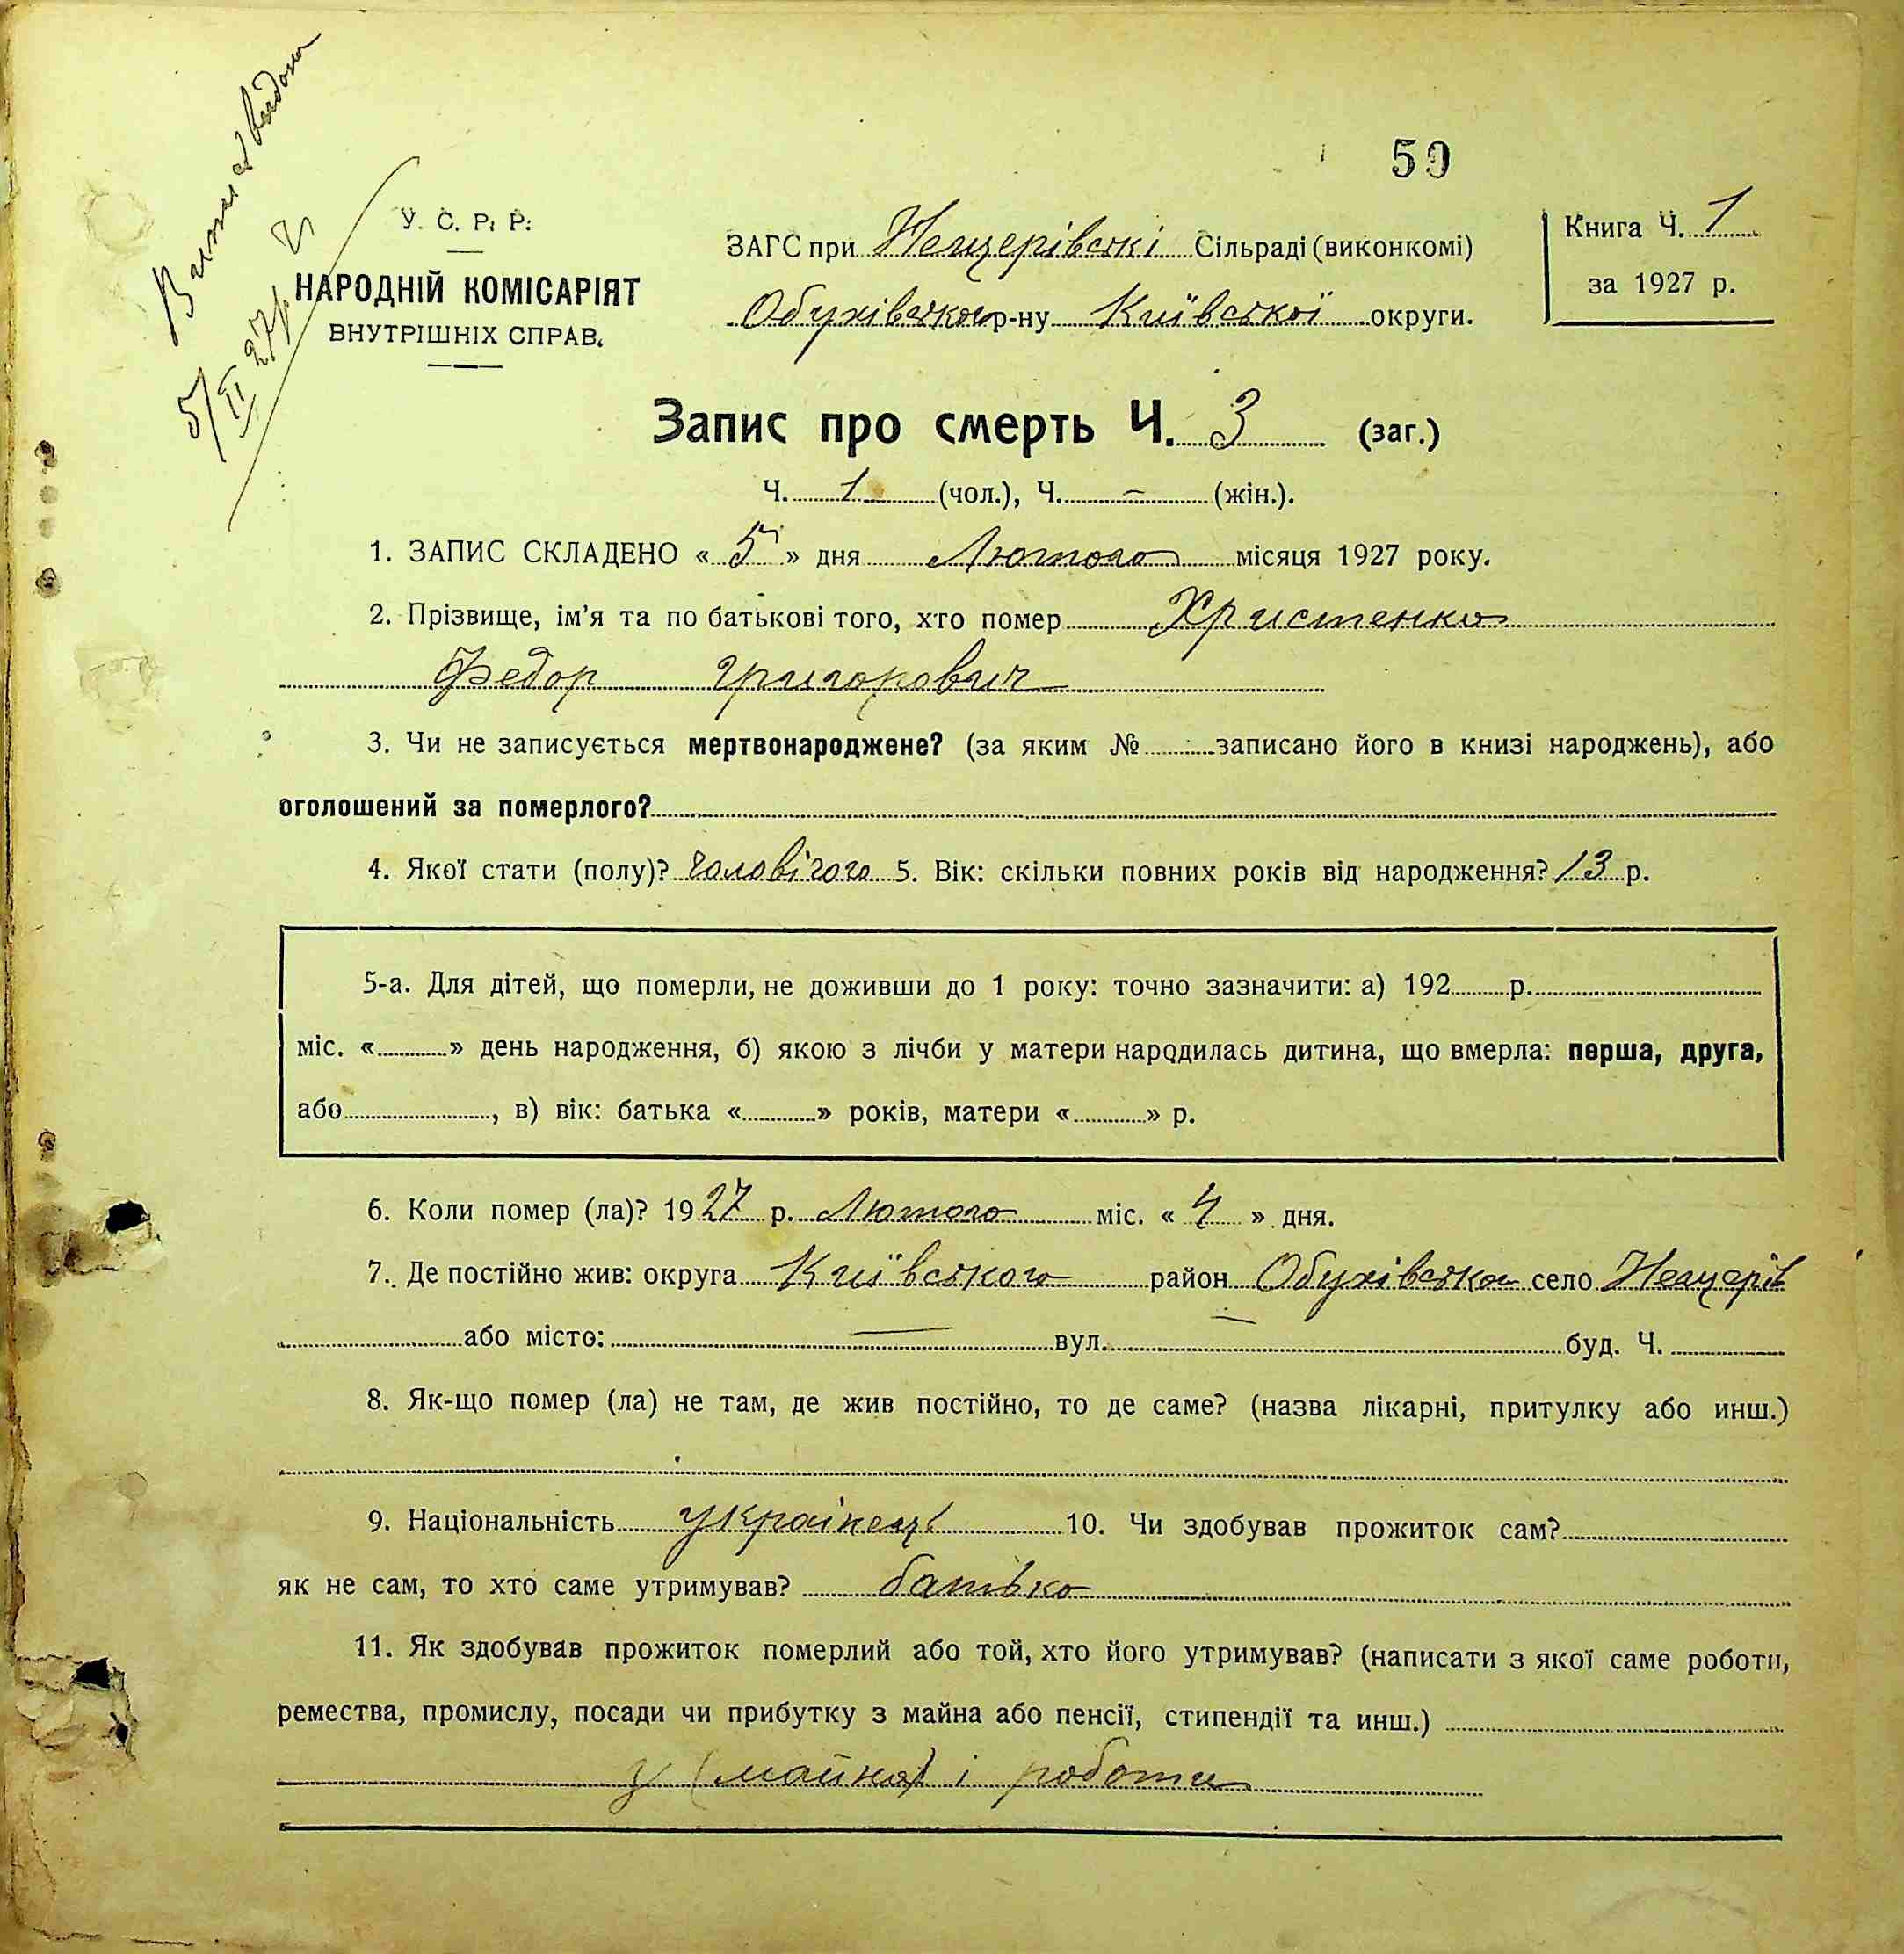 50
У. С. Р. Р.
НАРОДНІЙ КОМІСАРІЯТ
ВНУТРІШНІХ СПРАВ.
5/II 27 р.
ЗАГС при Нещерівські Сільраді (виконкомі)
Обухівського р-ну Київської округи.
Книга Ч. 1
за 1927 р.
Запис про смерть Ч. 3 (заг.)
Ч. 1 (чол.), Ч. – (жін.).
1. ЗАПИС СКЛАДЕНО « 5 » дня Лютого місяця 1927 року.
2. Прізвище, ім'я та по батькові того, хто помер Христенко
Федор Григорович
3. Чи не записується мертвонароджене? (за яким № записано його в книзі народжень), або
оголошений за померлого?
4. Якої стати (полу)? Чоловічого 5. Вік: скільки повних років від народження? 13 р.
5-а. Для дітей, що померли, не доживши до 1 року: точно зазначити: а) 192 р.
міс. « » день народження, б) якою з лічби у матери народилась дитина, що вмерла: перша, друга,
або , в) вік: батька « » років, матери « » р.
6. Коли помер (ла)? 1927 р. Лютого міс. « 4 » дня.
7. Де постійно жив: округа Київського район Обухівсько село Нещерів
або місто: — вул. — буд. Ч.
8. Як-що помер (ла) не там, де жив постійно, то де саме? (назва лікарні, притулку або инш.)
9. Національність українець 10. Чи здобував прожиток сам?
як не сам, то хто саме утримував? батько
11. Як здобував прожиток померлий або той, хто його утримував? (написати з якої саме роботи,
ремества, промислу, посади чи прибутку з майна або пенсії, стипендії та инш.)
у (майна) і роботи